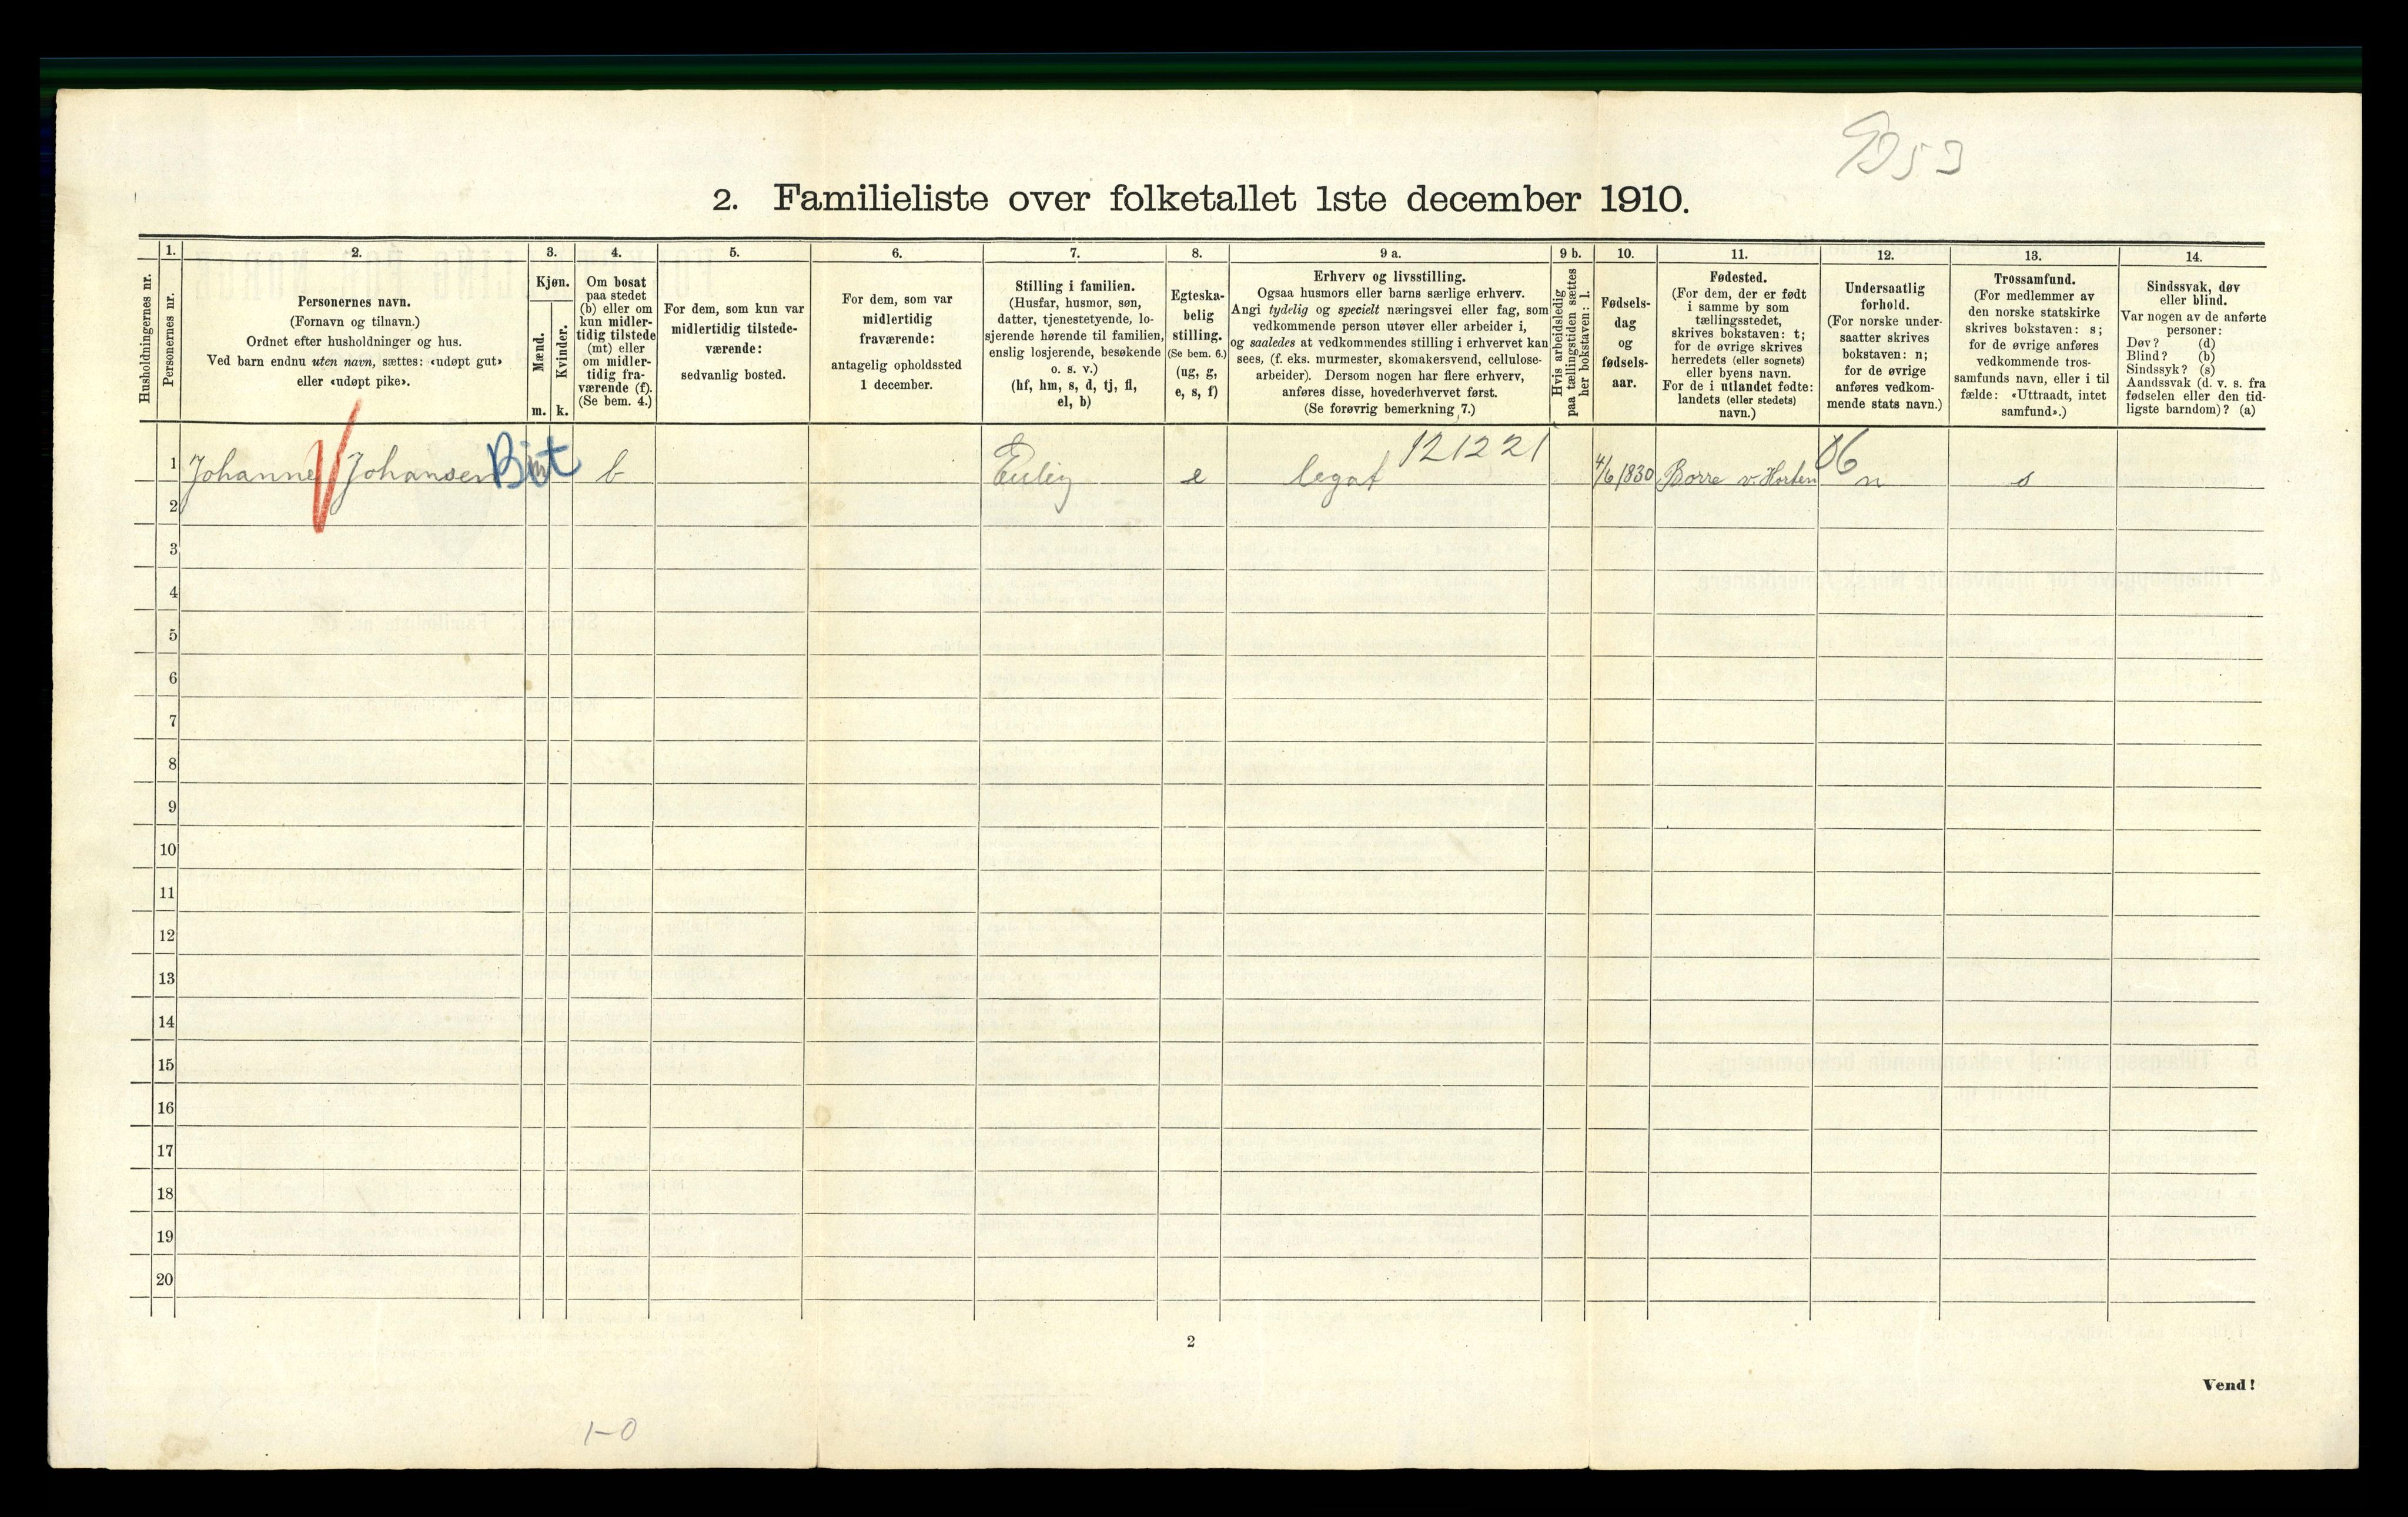 2. Familieliste over folketallet 1ste december 1910.
Husholdningernes nr.
1.
Personernes nr.
2.
Personernes navn.
(Fornavn og tilnavn.)
Ordnet efter husholdninger og hus.
Ved barn endnu uten navn, sættes: «udøpt gut»
eller «udøpt pike».
3.
Kjøn.
Mænd.
m.
Kvinder.
k.
4.
Om bosat
paa stedet
(b) eller om
kun midler-
tidig tilstede
(mt) eller
om midler-
tidig fra-
værende (f).
(Se bem. 4.)
5.
For dem, som kun var
midlertidig tilstede-
værende:
sedvanlig bosted.
6.
For dem, som var
midlertidig
fraværende:
antagelig opholdssted
1 december.
7.
Stilling i familien.
(Husfar, husmor, søn,
datter, tjenestetyende, lo-
sjerende hørende til familien,
enslig losjerende, besøkende
o. s. v.)
(hf, hm, s, d, tj, fl,
el, b)
8.
Egteska-
belig
stilling.
(Se bem. 6.)
(ug, g,
e, s, f)
9 a.
Erhverv og livsstilling.
Ogsaa husmors eller barns særlige erhverv.
Angi tydelig og specielt næringsvei eller fag, som
vedkommende person utøver eller arbeider i,
og saaledes at vedkommendes stilling i erhvervet kan
sees, (f. eks. murmester, skomakersvend, cellulose-
arbeider). Dersom nogen har flere erhverv,
anføres disse, hovederhvervet først.
(Se forøvrig bemerkning 7.)
9 b.
Hvis arbeidsledig
paa tællingstiden sættes
her bokstaven: l.
10.
Fødsels-
dag
og
fødsels-
aar.
11.
Fødested.
(For dem, der er født
i samme by som
tællingsstedet,
skrives bokstaven: t;
for de øvrige skrives
herredets (eller sognets)
eller byens navn.
For de i utlandet fødte:
landets (eller stedets)
navn.)
12.
Undersaatlig
forhold.
(For norske under-
saatter skrives
bokstaven: n;
for de øvrige
anføres vedkom-
mende stats navn.)
13.
Trossamfund.
(For medlemmer av
den norske statskirke
skrives bokstaven: s;
for de øvrige anføres
vedkommende tros-
samfunds navn, eller i til
fælde: «Uttraadt, intet
samfund».)
14.
Sindssvak, døv
eller blind.
Var nogen av de anførte
personer:
Døv? (d)
Blind? (b)
Sindssyk? (s)
Aandssvak (d. v. s. fra
fødselen eller den tid-
ligste barndom)? (a)
1 Johanne Johansen b Enlig e legat 121221 4/6 1830 Borre v. Horten 06 n s
2
3
4
5
6
7
8
9
10
11
12
13
14
15
16
17
18
19
20
2
Vend!
1-0